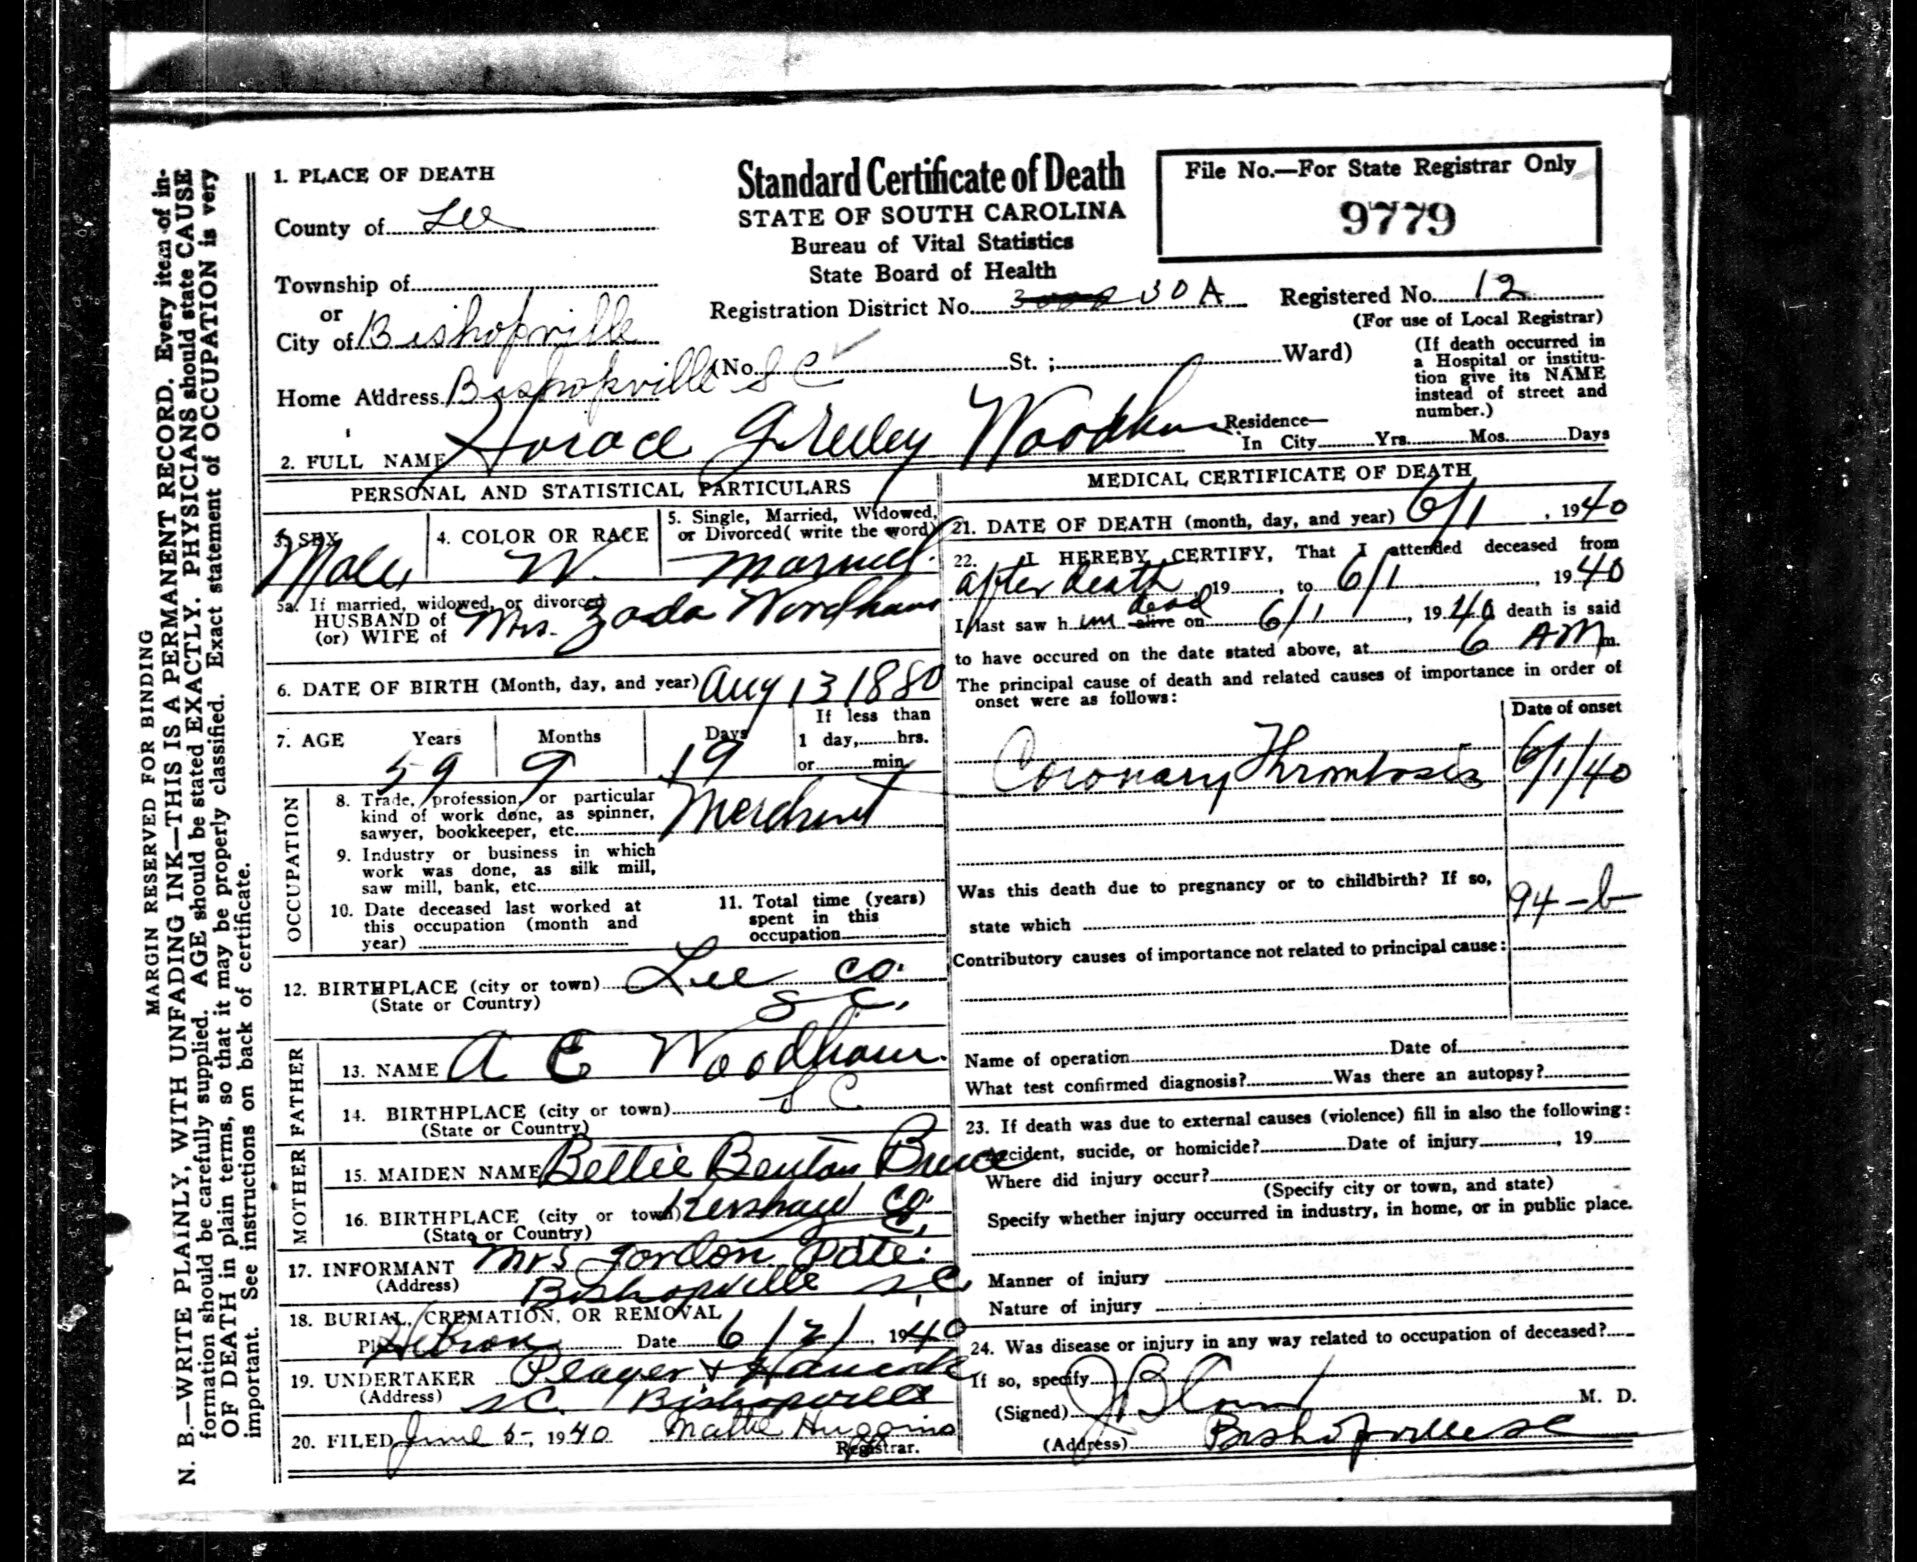 MARGIN RESERVED FOR BINDING
N. B.—WRITE PLAINLY, WITH UNFADING INK—THIS IS A PERMANENT RECORD. Every item of in-
formation should be carefully supplied. AGE should be stated EXACTLY. PHYSICIANS should state CAUSE
OF DEATH in plain terms, so that it may be properly classified. Exact statement of OCCUPATION is very
important. See instructions on back of certificate.
1. PLACE OF DEATH
County of Lee
Township of
or
City of Bishopville
Home Address Bishopville S C
Standard Certificate of Death
STATE OF SOUTH CAROLINA
Bureau of Vital Statistics
State Board of Health
Registration District No. 30A
(No. St. ; Ward)
File No.—For State Registrar Only
9779
Registered No. 12
(For use of Local Registrar)
(If death occurred in
a Hospital or institu-
tion give its NAME
instead of street and
number.)
2. FULL NAME Horace Greeley Woodham
Residence—
In City Yrs. Mos. Days
PERSONAL AND STATISTICAL PARTICULARS
3. SEX
Male
4. COLOR OR RACE
W.
5. Single, Married, Widowed,
or Divorced (write the word)
married.
5a. If married, widowed, or divorced
HUSBAND of
(or) WIFE of
Mrs. Zada Woodham
6. DATE OF BIRTH (Month, day, and year) Aug 13 1880
7. AGE Years Months Days
59 9 19
If less than
1 day, hrs.
or min.
OCCUPATION
8. Trade, profession, or particular
kind of work done, as spinner,
sawyer, bookkeeper, etc. Merchant
9. Industry or business in which
work was done, as silk mill,
saw mill, bank, etc.
10. Date deceased last worked at
this occupation (month and
year)
11. Total time (years)
spent in this
occupation
12. BIRTHPLACE (city or town) Lee Co.
(State or Country) S C.
FATHER
13. NAME A E Woodham.
14. BIRTHPLACE (city or town) S C
(State or Country)
MOTHER
15. MAIDEN NAME Bettie Benton Bruce
16. BIRTHPLACE (city or town) Kershaw Co.
(State or Country)
17. INFORMANT Mrs Gordon Pate.
(Address) Bishopville S. C
18. BURIAL, CREMATION, OR REMOVAL
Place Hebron Date 6/2/, 1940
19. UNDERTAKER
(Address) SC. Bishopville
20. FILED June 5, 1940 Mattie Huggins
Registrar.
MEDICAL CERTIFICATE OF DEATH
21. DATE OF DEATH (month, day, and year) 6/1, 1940
22. I HEREBY CERTIFY, That I attended deceased from
after death 19, to 6/1, 1940
I last saw him alive dead on 6/1, 1940 death is said
to have occured on the date stated above, at 6 AM m.
The principal cause of death and related causes of importance in order of
onset were as follows:
Date of onset
Coronary Thrombosis 6/1/40
Was this death due to pregnancy or to childbirth? If so,
state which
94-b
Contributory causes of importance not related to principal cause:
Name of operation Date of
What test confirmed diagnosis? Was there an autopsy?
23. If death was due to external causes (violence) fill in also the following:
Accident, sucide, or homicide? Date of injury, 19
Where did injury occur?
(Specify city or town, and state)
Specify whether injury occurred in industry, in home, or in public place.
Manner of injury
Nature of injury
24. Was disease or injury in any way related to occupation of deceased?
If so, specify
(Signed) M. D.
(Address) Bishopville SC